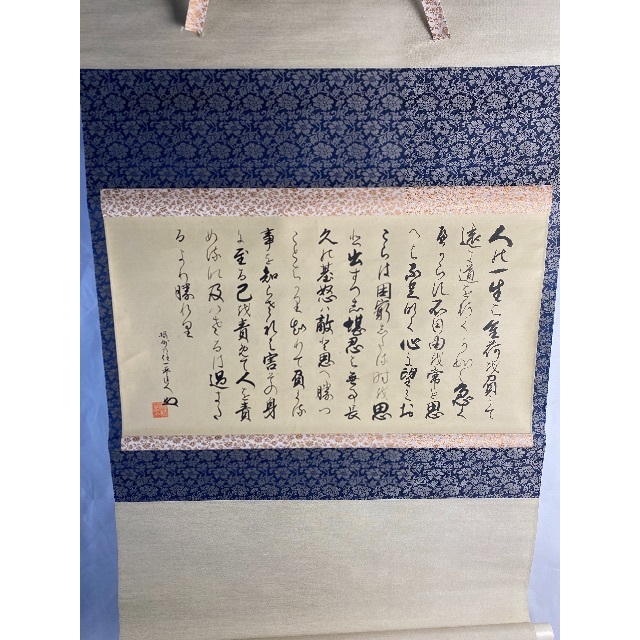 人の一生は重荷を負て
遠き道を行くが如し急く
へからす不自由を常と思
へは不足なく心に望みお
こらは困窮したる時を思
出すへし堪忍は無事長
久の基怒は敵と思へ勝つ
ことはかり知りて負くる
事を知らされは害その身
に至る己を責めて人を責
めるな及はさるは過きた
るより勝れり